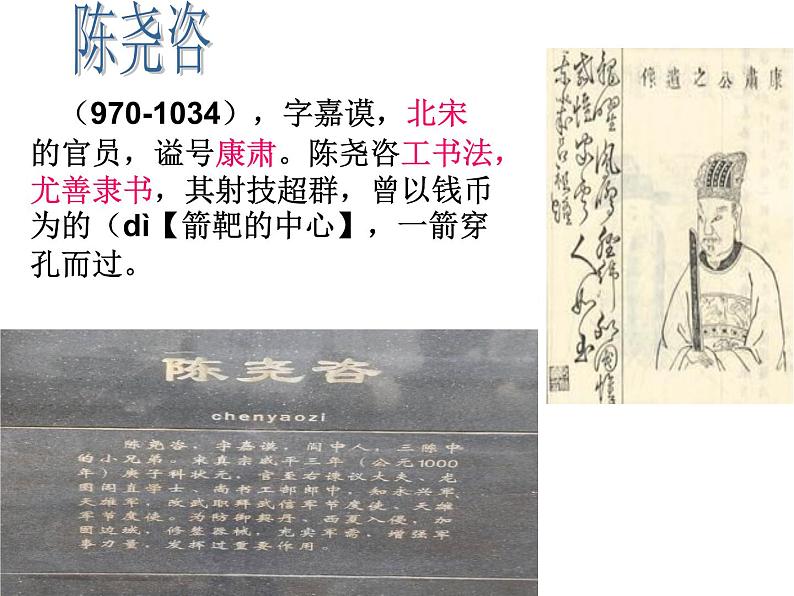 陈尧咨
（970-1034），字嘉谟，北宋
的官员，谥号康肃。陈尧咨工书法，
尤善隶书，其射技超群，曾以钱币
为的（dì【箭靶的中心】，一箭穿
孔而过。
康肃公之遗像
陈尧咨
chenyaozi
陈尧咨，字嘉谟，阆中人，三陈中
的小兄弟。宋真宗咸平三年（公元1000
年）庚子科状元，官至右谏议大夫、龙
图阁直学士、尚书工部郎中，知永兴军、
天雄军，改武职拜武信军节度使、天雄
军节度使。为防御契丹、西夏入侵，加
固边城，修整器械，充实军需，增强军
事力量，发挥过重要作用。